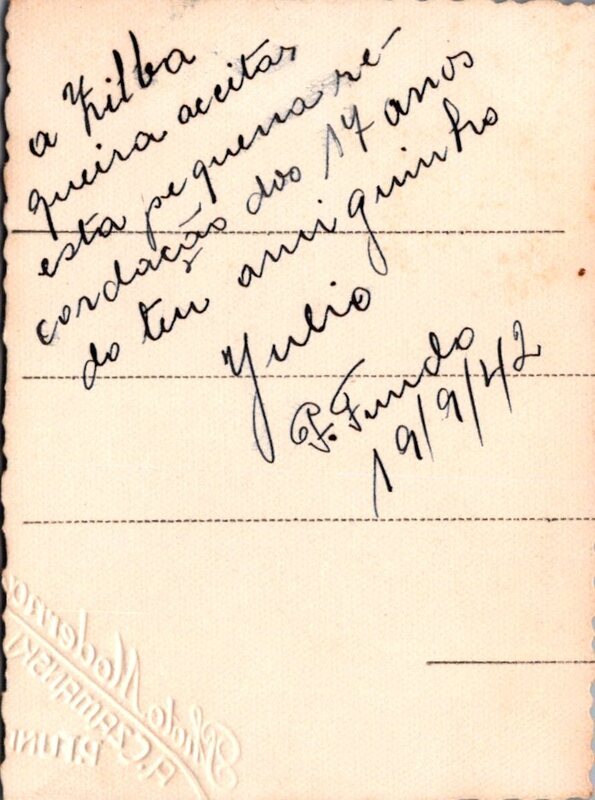 a Zilba
queira acceitar
esta pequena re-
cordação dos 17 anos
do teu amiguinho
Julio
P. Fundo
19/9/42
Photo Moderna
A. CZAMANSKI